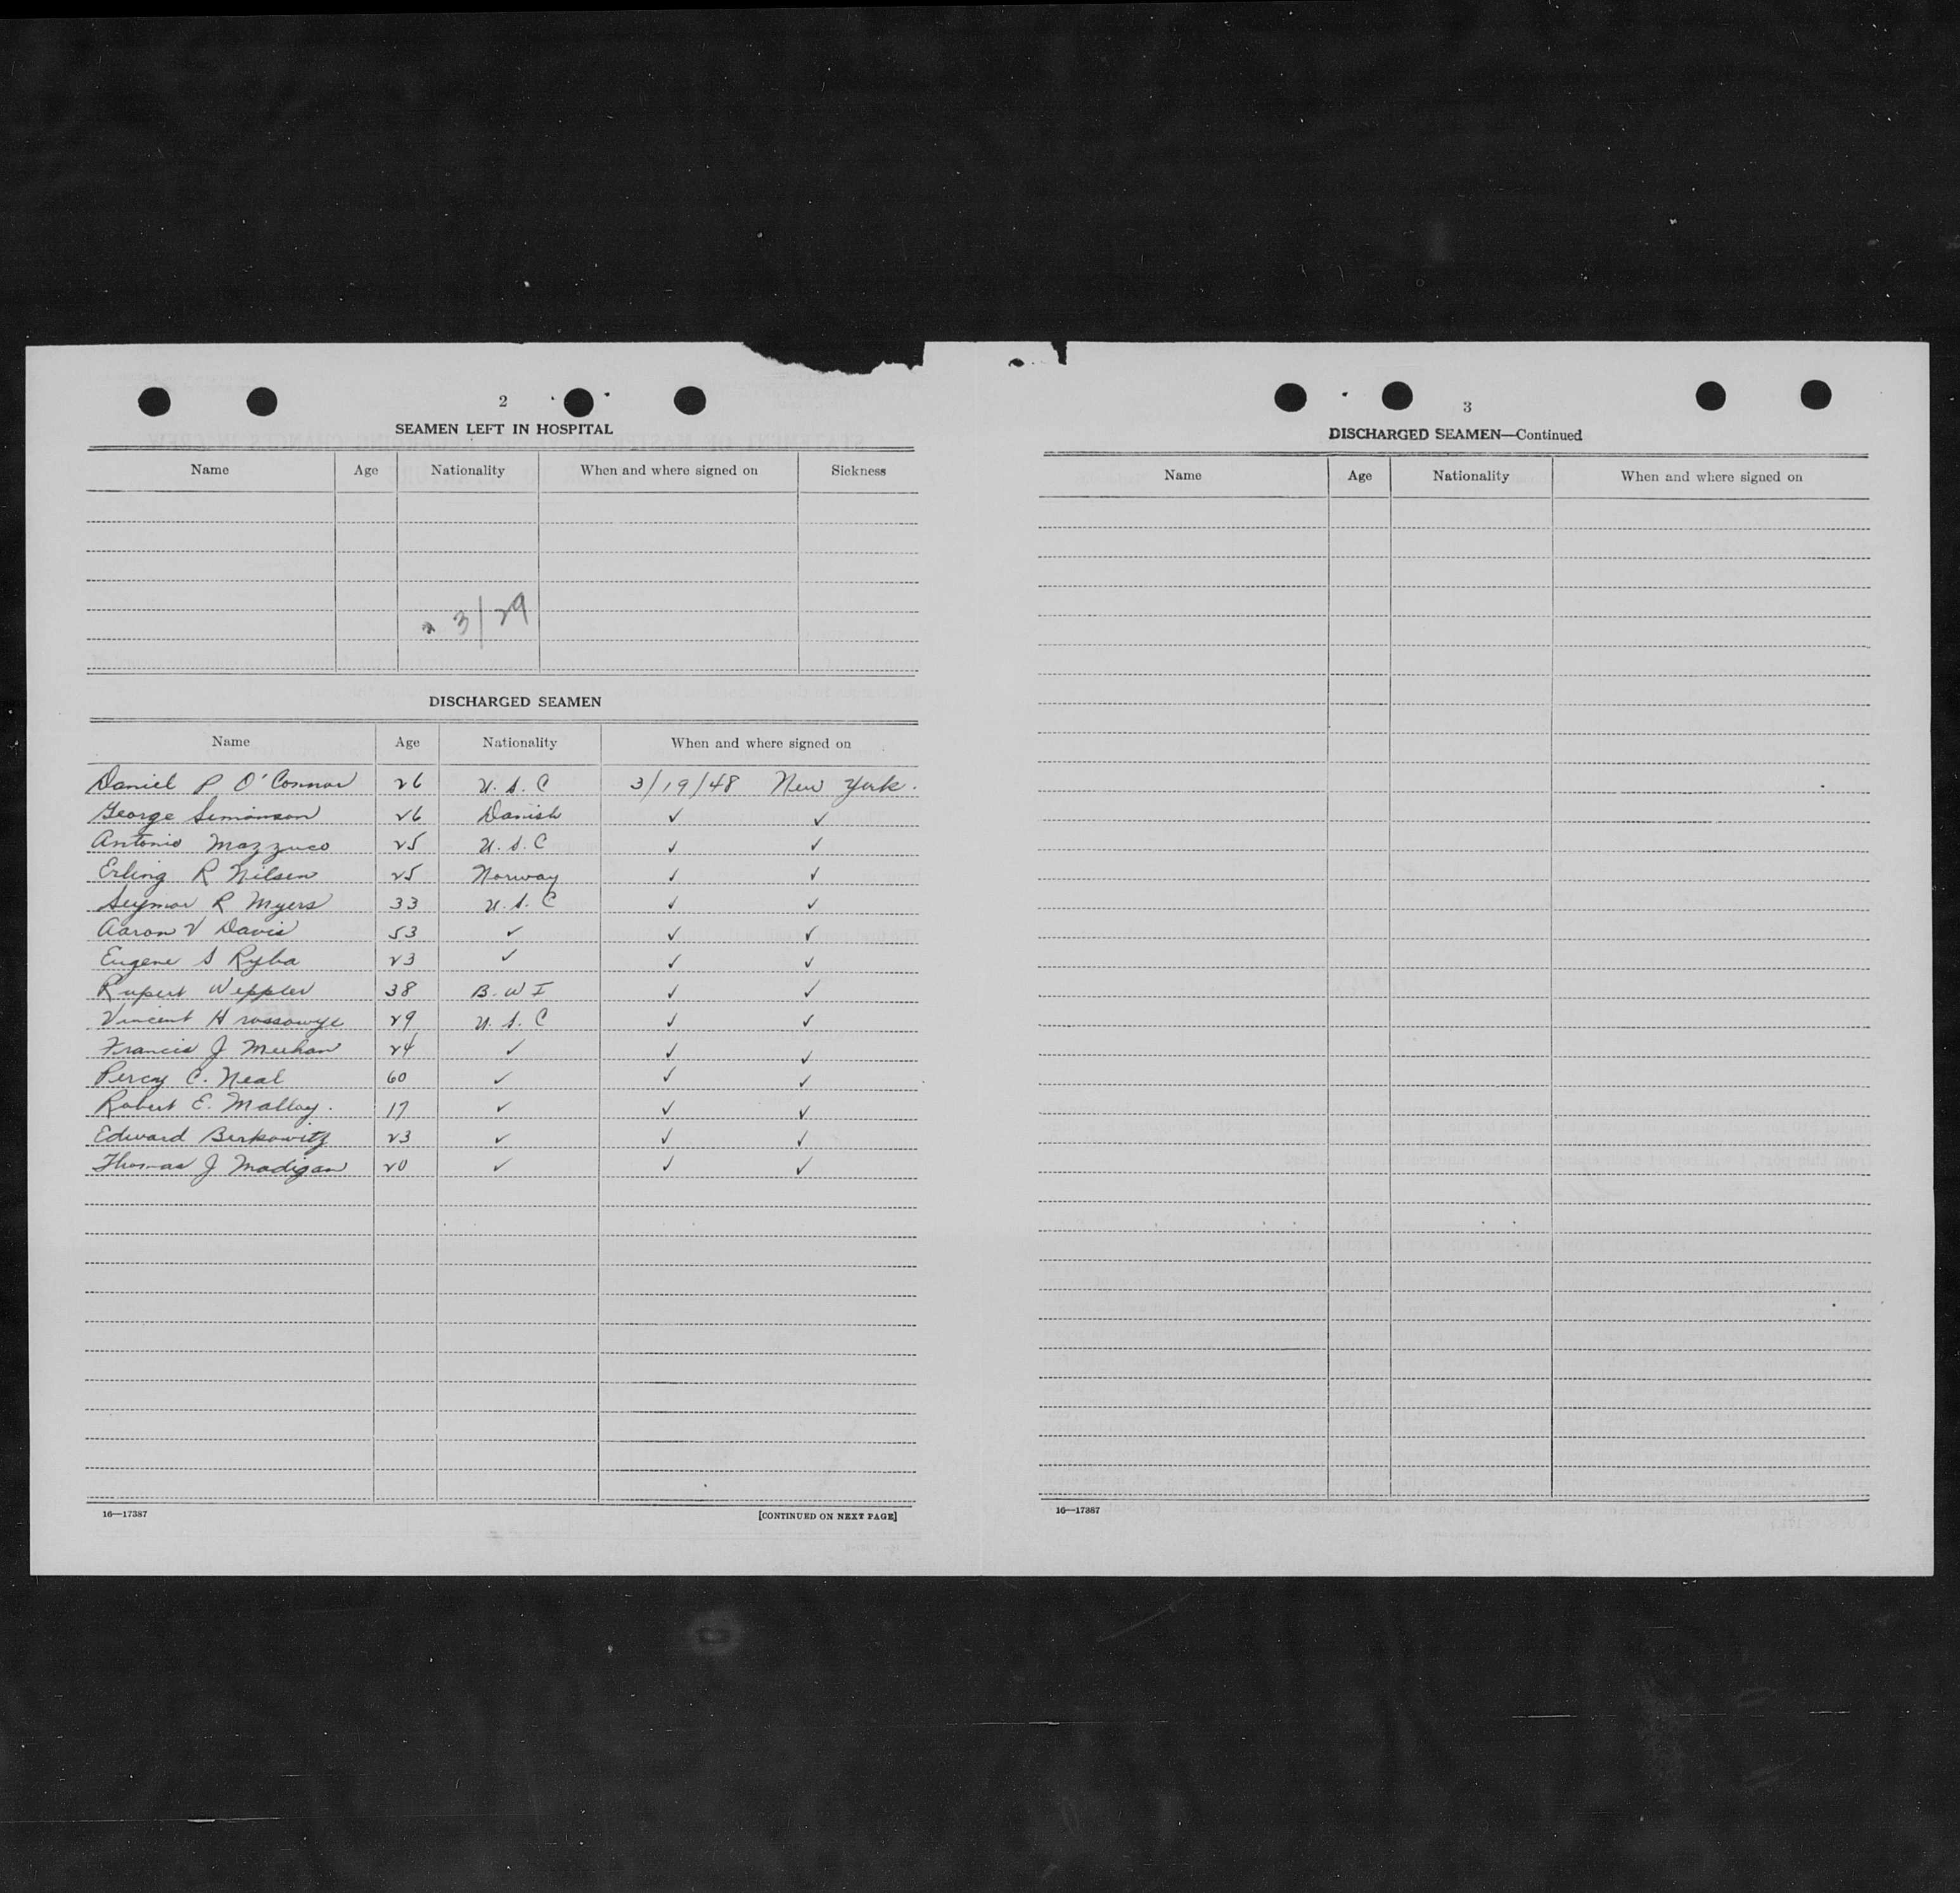 2
SEAMEN LEFT IN HOSPITAL
Name Age Nationality When and where signed on Sickness
3/29
DISCHARGED SEAMEN
Name Age Nationality When and where signed on
Daniel P O'Connor 26 U.S.C 3/19/48 New York.
George Simonson 26 Danish ✓ ✓
Antonio Mazzuco 25 U.S.C ✓ ✓
Erling R Nilsen 25 Norway ✓ ✓
Seymor R Myers 33 U.S.C ✓ ✓
Aaron V Davis 53 ✓ ✓ ✓
Eugene S Ryba 23 ✓ ✓ ✓
Rupert Weppler 38 B.W I ✓ ✓
Vincent 29 U.S.C ✓ ✓
Francis J Meehan 24 ✓ ✓ ✓
Percy C. Neal 60 ✓ ✓ ✓
Robert E. Malloy. 17 ✓ ✓ ✓
Edward Berkowitz 23 ✓ ✓ ✓
Thomas J Madigan 20 ✓ ✓ ✓
16—17387 [CONTINUED ON NEXT PAGE]
3
DISCHARGED SEAMEN—Continued
Name Age Nationality When and where signed on
16—17387